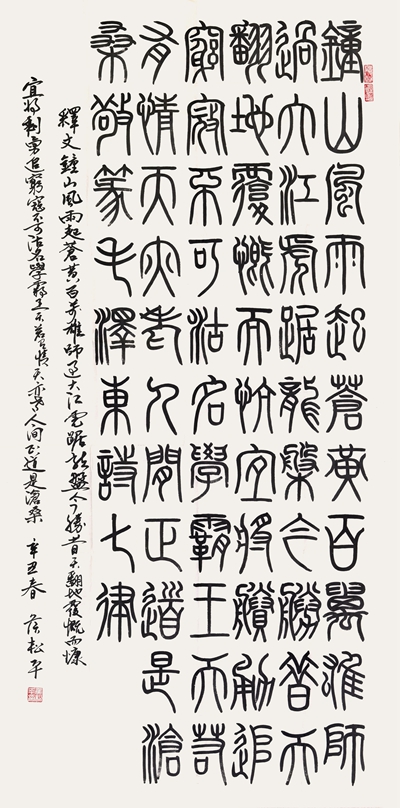 鐘山風雨起蒼黃百萬雄師
過大江虎踞龍盤今勝昔天
翻地覆慨而慷宜將剩勇追
窮寇不可沽名學霸王天若
有情天亦老人間正道是滄
桑敬篆毛澤東詩七律
釋文鐘山風雨起蒼黃百万雄師過大江虎踞龍盤今勝昔天翻地覆慨而慷
宜將剩勇追窮寇不可沽名學霸王天若有情天亦老人间正道是滄桑 辛丑春 侯松平